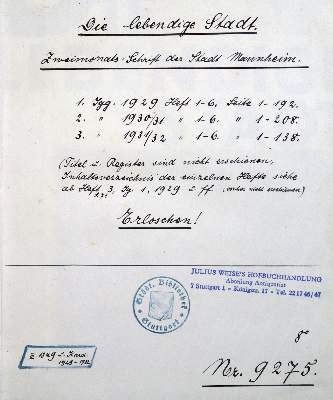 Die lebendige Stadt.
Zweimonats-Schrift der Stadt Mannheim.
1. Jgg. 1929 Heft 1-6. Seite 1-192.
2. " 1930/31 " 1-6. " 1-208.
3. " 1931/32 " 1-6. " 1-138.
(Titel u. Register sind nicht erschienen,
Inhaltsverzeichnis der einzelnen Hefte siehe
ab Heft 3, Jg. 1, 1929 u. ff.
Erloschen!
JULIUS WEISE'S HOFBUCHHANDLUNG
Abteilung Antiquariat
7 Stuttgart 1 - Königstr. 17 - Tel. 221746/47
Städt. Bibliothek
Stuttgart
8°
Nr. 9275.